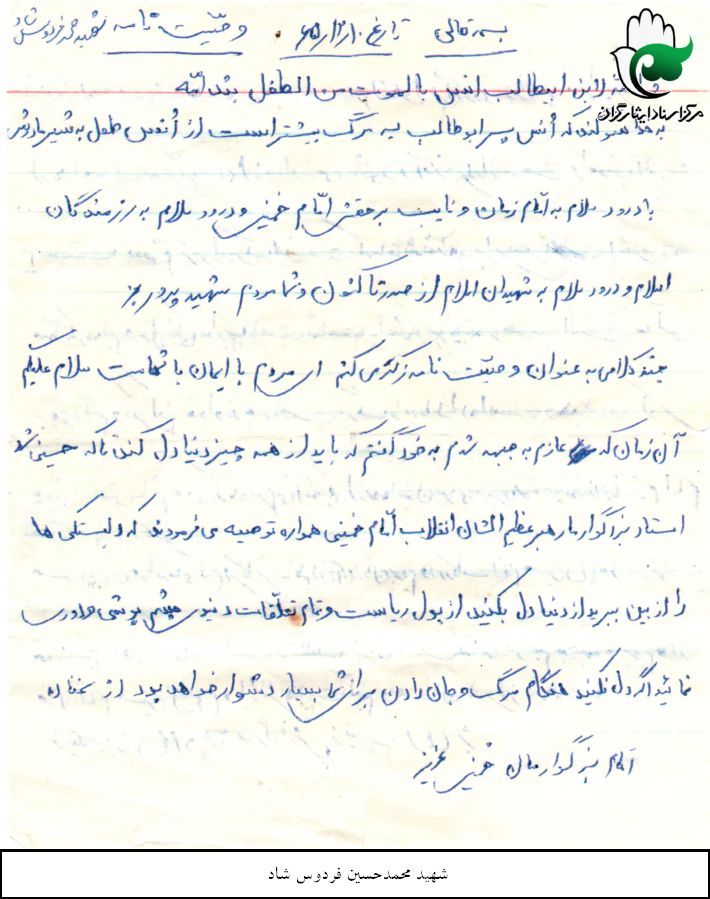 بسمه تعالی تاریخ وصیّت نامه شهید
مرکز اسناد ایثارگران
لابن ابیطالب انس بالموت من الطفل بثدامّه
به خدا سوگند که اُنس پسر ابوطالب به مرگ بیشتر است از اُنس طفل به شیر مادرش
با درود سلام به امام زمان و نایب بر حقش امّام خمینی و درود سلام به رزمندگان
اسلام و درود سلام به شهیدان اسلام از صدر تا کنون و شما مردم شهید پرور
چند کلامی به عنوان وصیّت نامه ذکر می کنم ای مردم با ایمان با شهامت سلام علیکم
آن زمان که عازم به جبهه شدم به خود گفتم که باید از همه چیز دنیا دل کند
استاد بزرگوار ما رهبر عظیم الشان انقلاب امّام خمینی همواره توصیه می فرمودند که وابستگی ها
را از بین ببرید از دنیا دل بکنید از پول ریاست و تمام تعلّقات دنیوی چشم پوشی و دوری
نمائید اگر دل نکنید هنگام مرگ و جان دادن برای شما بسیار دشوار خواهد بود از سخنان
امام بزرگوارمان خمینی عزیز
شهید محمدحسین فردوس شاد